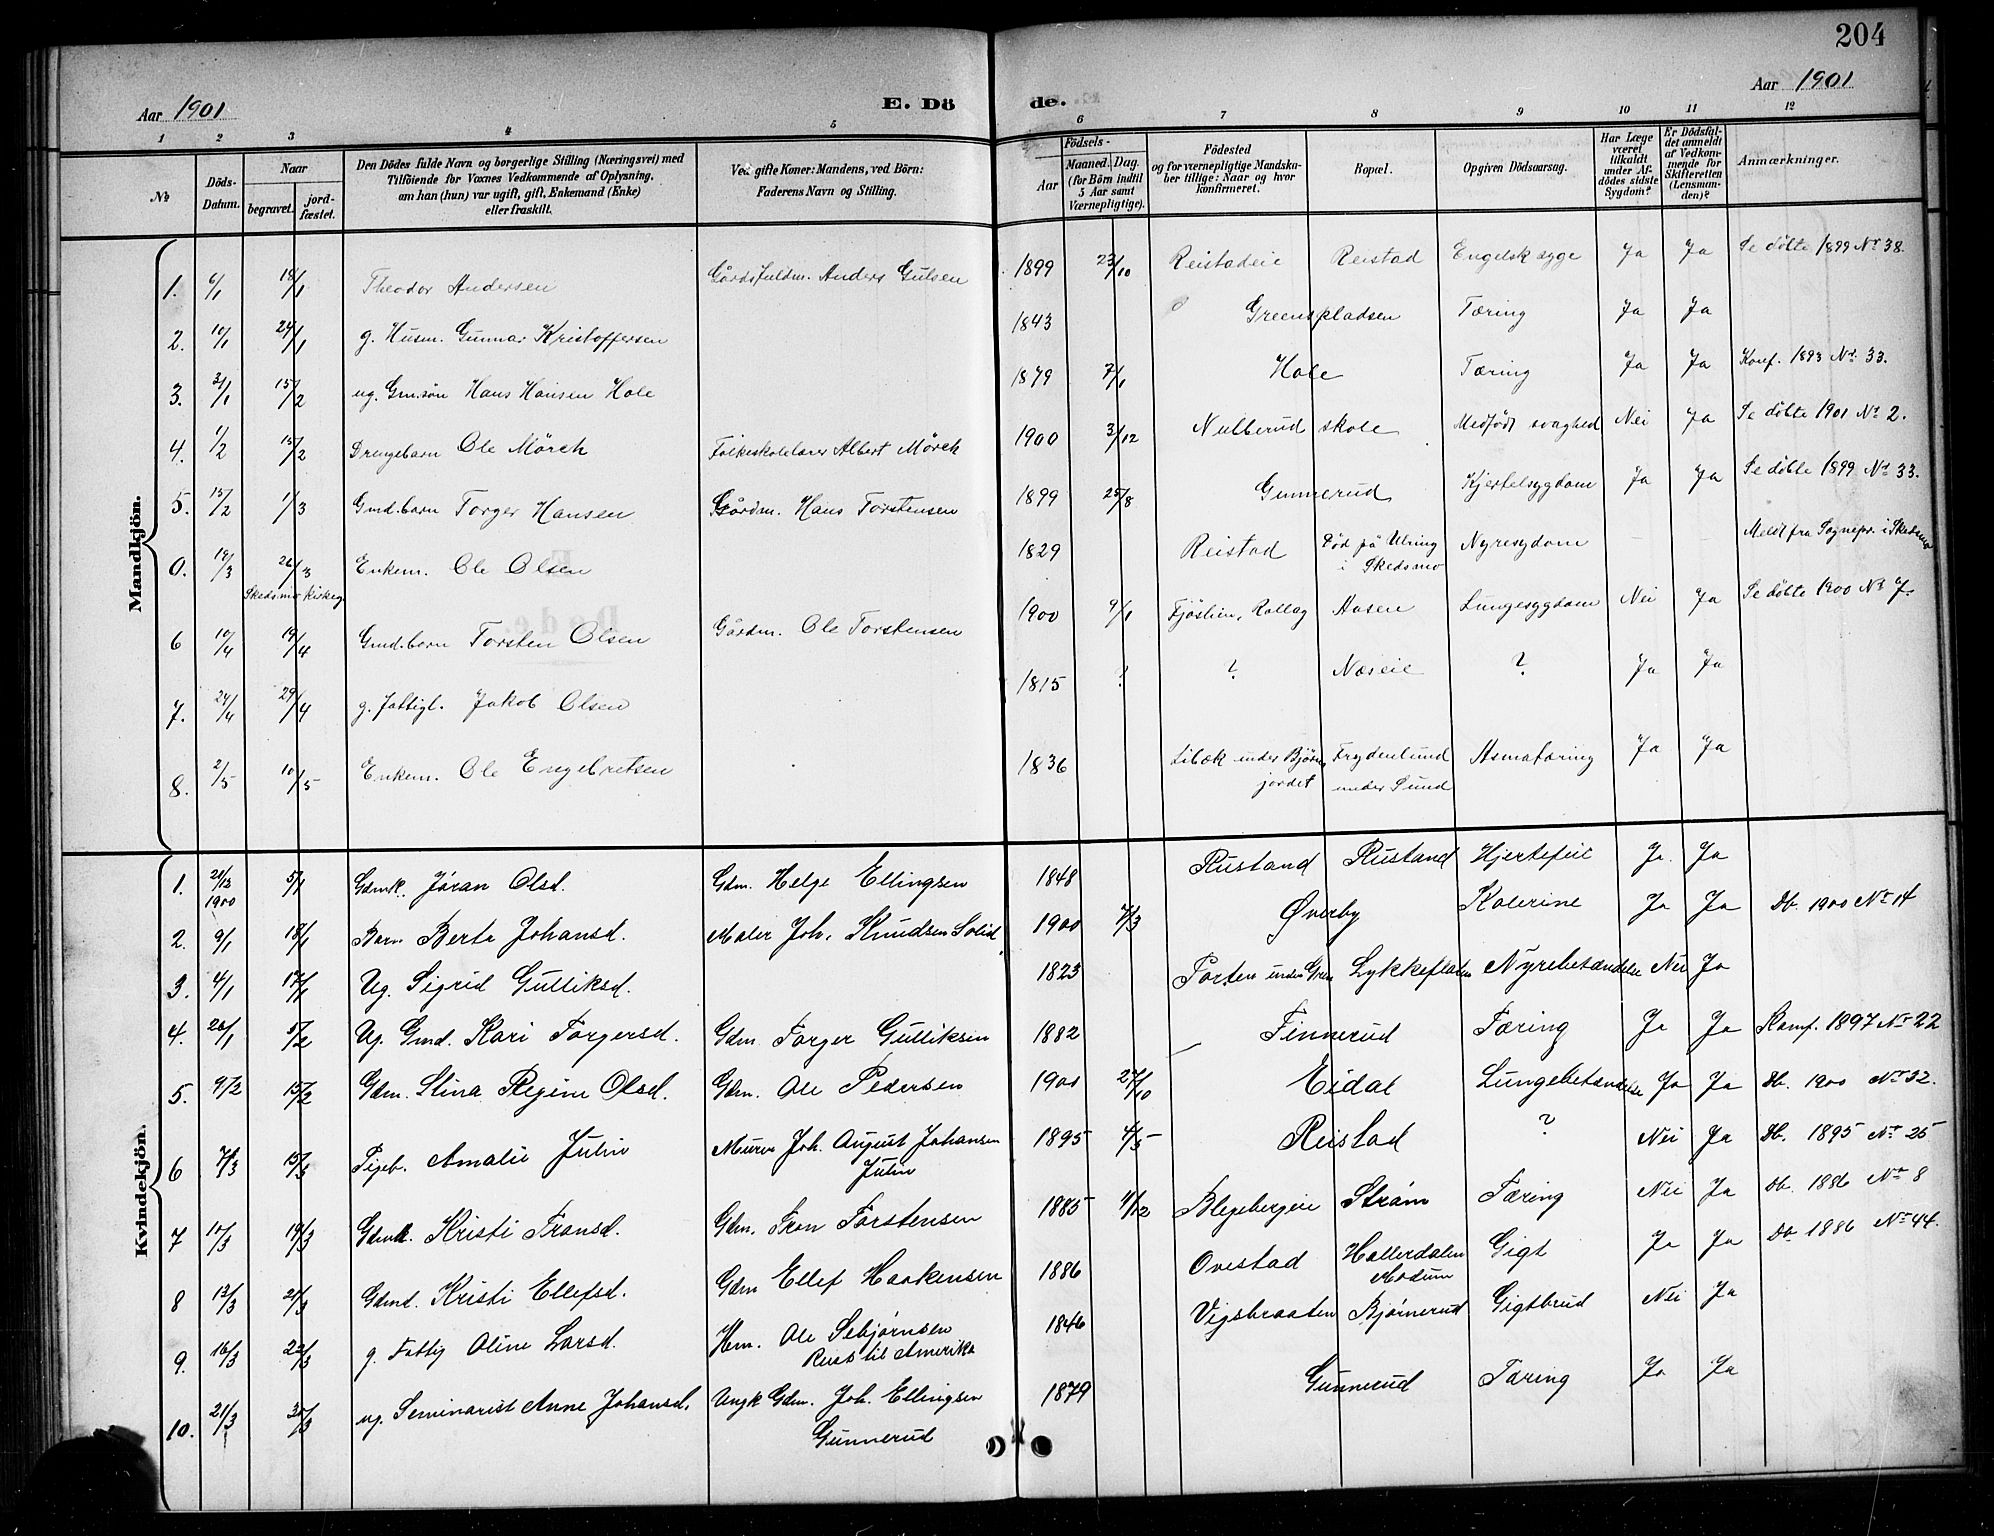 204
Aar 1901
E. Dö
de.
Aar 1901
1 2 3 4 5 6 7 8 9 10 11 12
No
Döds-Datum.
Naar
begravet.
jord-fæstet.
Den Dödes fulde Navn og borgerlige Stilling (Næringsvei) med
Tilföiende for Voxnes Vedkommende af Oplysning,
om han (hun) var ugift, gift, Enkemand (Enke)
eller fraskilt.
Ved gifte Koner: Mandens, ved Börn:
Faderens Navn og Stilling.
Födsels-
Aar
Maaned. Dag.
(for Börn indtil
5 Aar samt
Værnepligtige).
Födested
og for værnepligtige Mandska-
ber tillige: Naar og hvor
konfirmeret.
Bopæl.
Opgiven Dödsaarsag.
Har Læge
været
tilkaldt
under Af-
dödes sidste
Sygdom?
Er Dödsfal-
det anmeldt
af Vedkom-
mende for
Skifteretten
(Lensman-
den)?
Anmærkninger.
Mandkjön.
1. 6/1 18/1 Theodor Andersen Gårdsfuldm. Anders Gulsen 1899 23/10 Reistadeie Reistad Engelsk syge Ja Ja Se döbte 1899 No 38.
2. 10/1 24/1 g. Husm. Gunnar Kristoffersen 1843 Greenspladsen Tæring Ja Ja
3. 31/1 15/2 ug. Gm.sön Hans Hansen Hole 1879 7/1 Hole Tæring Ja Ja Konf. 1893 No. 33.
4. 1/2 15/2 Drengebarn Ole Mörch Folkeskolelærer Albert Mörch 1900 3/12 Nulberud skole Medfödt svaghed Nei Ja Se döbte 1901 No 2.
5. 15/2 1/3 Gmd.barn Torger Hansen Gårdm. Hans Torstensen 1899 25/8 Gunnerud Kjertelsygdom Ja Ja Se döbte 1899 No 33.
0. 19/3 26/3 Enkem. Ole Olsen 1829 Reistad Född på Ulring Nyresygdom – – Meldt fra Sognepr. i Skedsmo
Skedsmo Kirkeg. i Skedsmo
6 10/4 19/4 Gmd.barn Torsten Olsen Gårdm. Ole Torstensen 1900 9/1 Fjöslien, Rollag Aasen Lungesygdom Nei Ja Se döbte 1900 No 7.
7. 24/4 29/4 g. fattigl. Jakob Olsen 1815 ? ? Næseie ? Ja Ja
8. 2/5 10/5 Enkem. Ole Engebretsen 1836 Libæk under Björn- Frydenlund Asmatæring Ja Ja
jordet under Sund
Kvindekjön.
1. 21/12 5/1 Gdmk. Jøran Olsd. Gdm. Helge Ellingsen 1848 Rustand Rustand Hjertefeil Ja Ja
1900
2. 9/1 18/1 Barn Berta Johansd. Maler Joh. Knudsen Solid 1900 7/3 Øverby Kolerine Ja Ja Db. 1900 No 14
3. 4/1 17/1 Ug. Sigrid Gulliksd. 1823 Porten under Gren Lykkepladen Nyrebetændelse Nei Ja
4. 26/1 5/2 Ug. Gmd. Kari Torgersd. Gdm Torger Gulliksen 1882 Finnerud Tæring Ja Ja Komf. 1897 No 22
5. 9/2 15/2 Gdm. Stina Regine Olsd. Gdm. Ole Pedersen 1900 27/10 Eidal Lungebetændelse Ja Ja Db. 1900 No 32.
6 7/3 15/3 Pigeb. Amalie Julin Murer Joh. August Johansen 1895 4/5 Reistad ? Nei Ja Db. 1895 No 25
Julin
7 10/3 19/3 Gdmk. Kristi Fransd. Gdm. Tron Torstensen 1885 1/12 Blegebergeie Strøm Tæring Nei Ja Db. 1886 No 8
8 12/3 21/3 Gdmd. Kristi Ellefsd. Gdm Ellef Haakensen 1886 Ovestad Hallerdalen Gigt Ja Ja Db 1886 No 44.
Modum
9. 16/3 22/3 g. Fattig Oline Larsd. Hm. Ole Sebjørnsen 1846 Vigsbraaten Bjørnerud Gigtbrud Nei Ja
Reist til Amerika
10. 21/3 30/3 ug. Seminarist Anne Johansd. Ungk Gdm. Joh. Ellingsen 1879 Gunnerud Tæring Ja Ja
Gunnerud